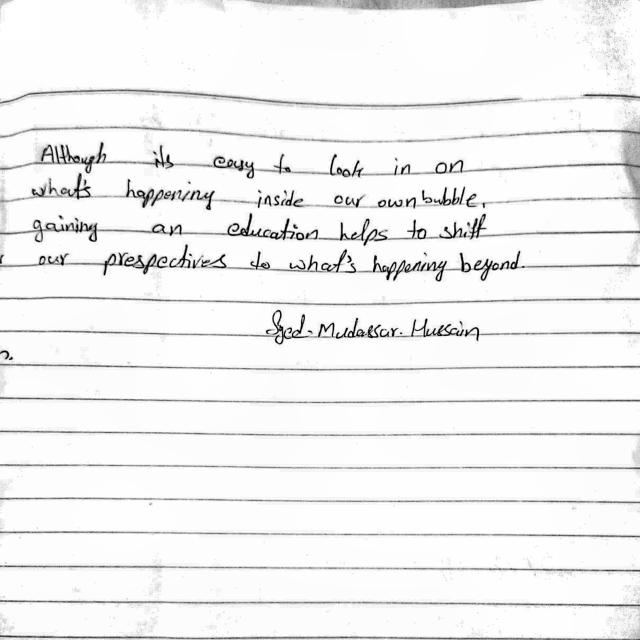 Although its easy to look in on
what's happening inside our own bubble,
gaining an education helps to shift
our prespectives to what's happening beyond.
Syed. Mudassar. Hussain